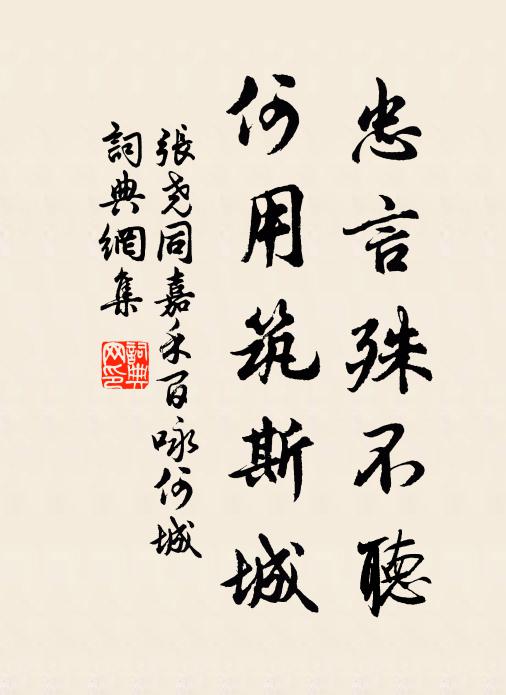 忠言殊不聽
何用筑斯城
張堯同嘉禾百咏何城
詞典網集
詞典網印